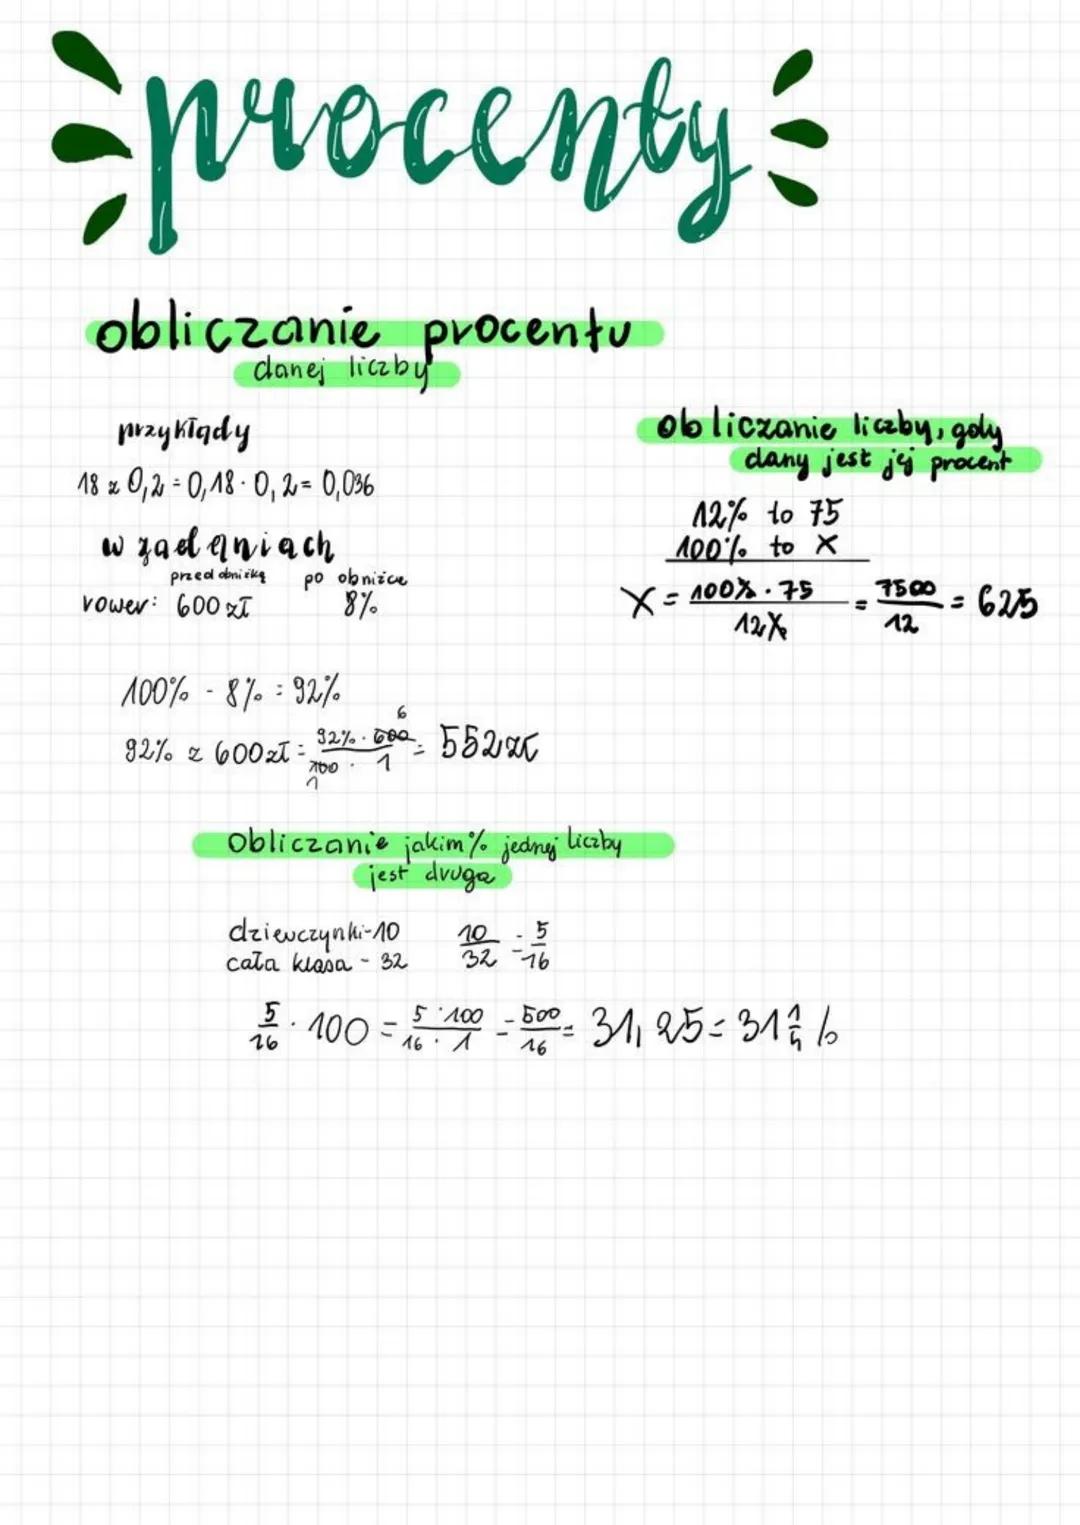 procenty
obliczanie procentu
danej liczby
przykłady
18 z 0,2 = 0,18 · 0,2 = 0,036
w zadaniach
przed obniżką po obniżce
rower: 600 zł 8%
100% - 8% = 92%
92% z 600zł = 92% · 600 / 100 · 1 = 552zł
6
1
obliczanie liczby, gdy
dany jest jej procent
12% to 75
100% to X
X = 100% · 75 / 12% = 7500 / 12 = 625
Obliczanie jakim % jednej liczby
jest druga
dziewczynki-10 10/32 = 5/16
cała klasa - 32
5/16 · 100 = 5 · 100 / 16 · 1 = 500/16 = 31,25 = 31 1/4 %